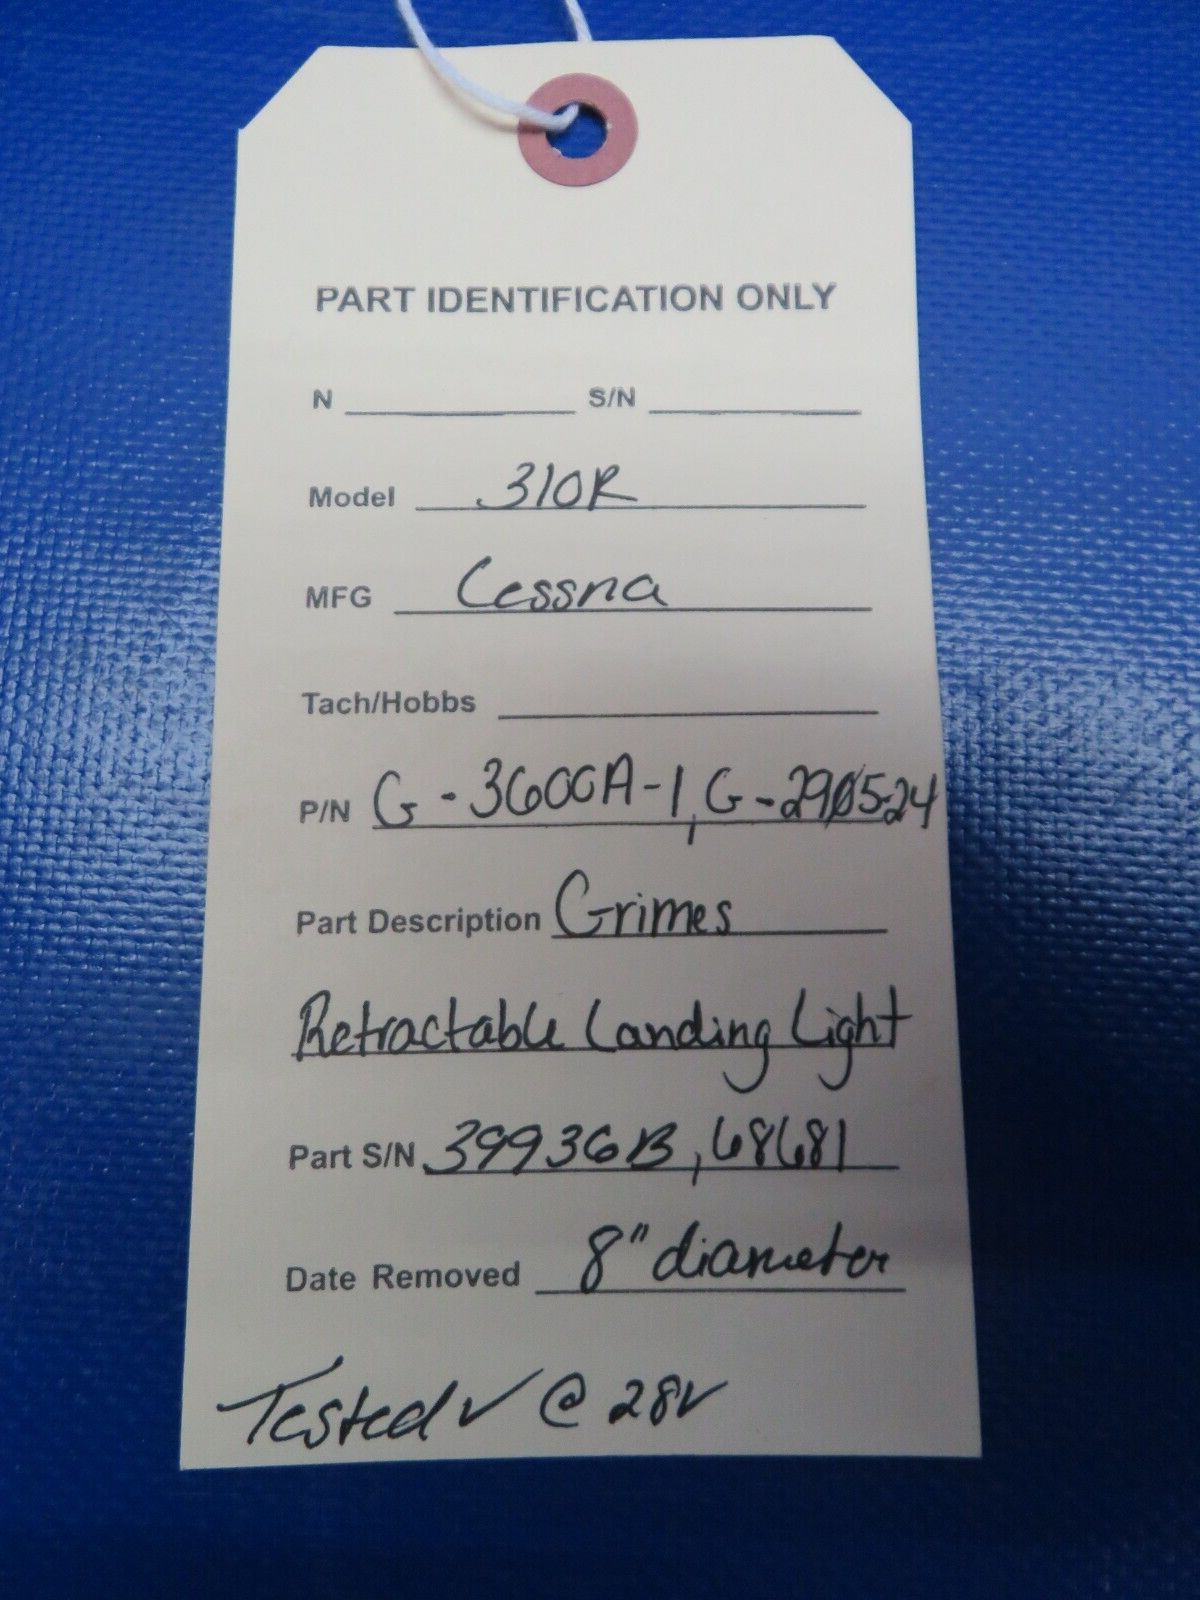 PART IDENTIFICATION ONLY
N S/N
Model 310R
MFG Cessna
Tach/Hobbs
P/N G-3600A-1, G-290524
Part Description Grimes
Retractable Landing Light
Part S/N 39936B, 68681
Date Removed 8" diameter
Tested ✓ @ 28V